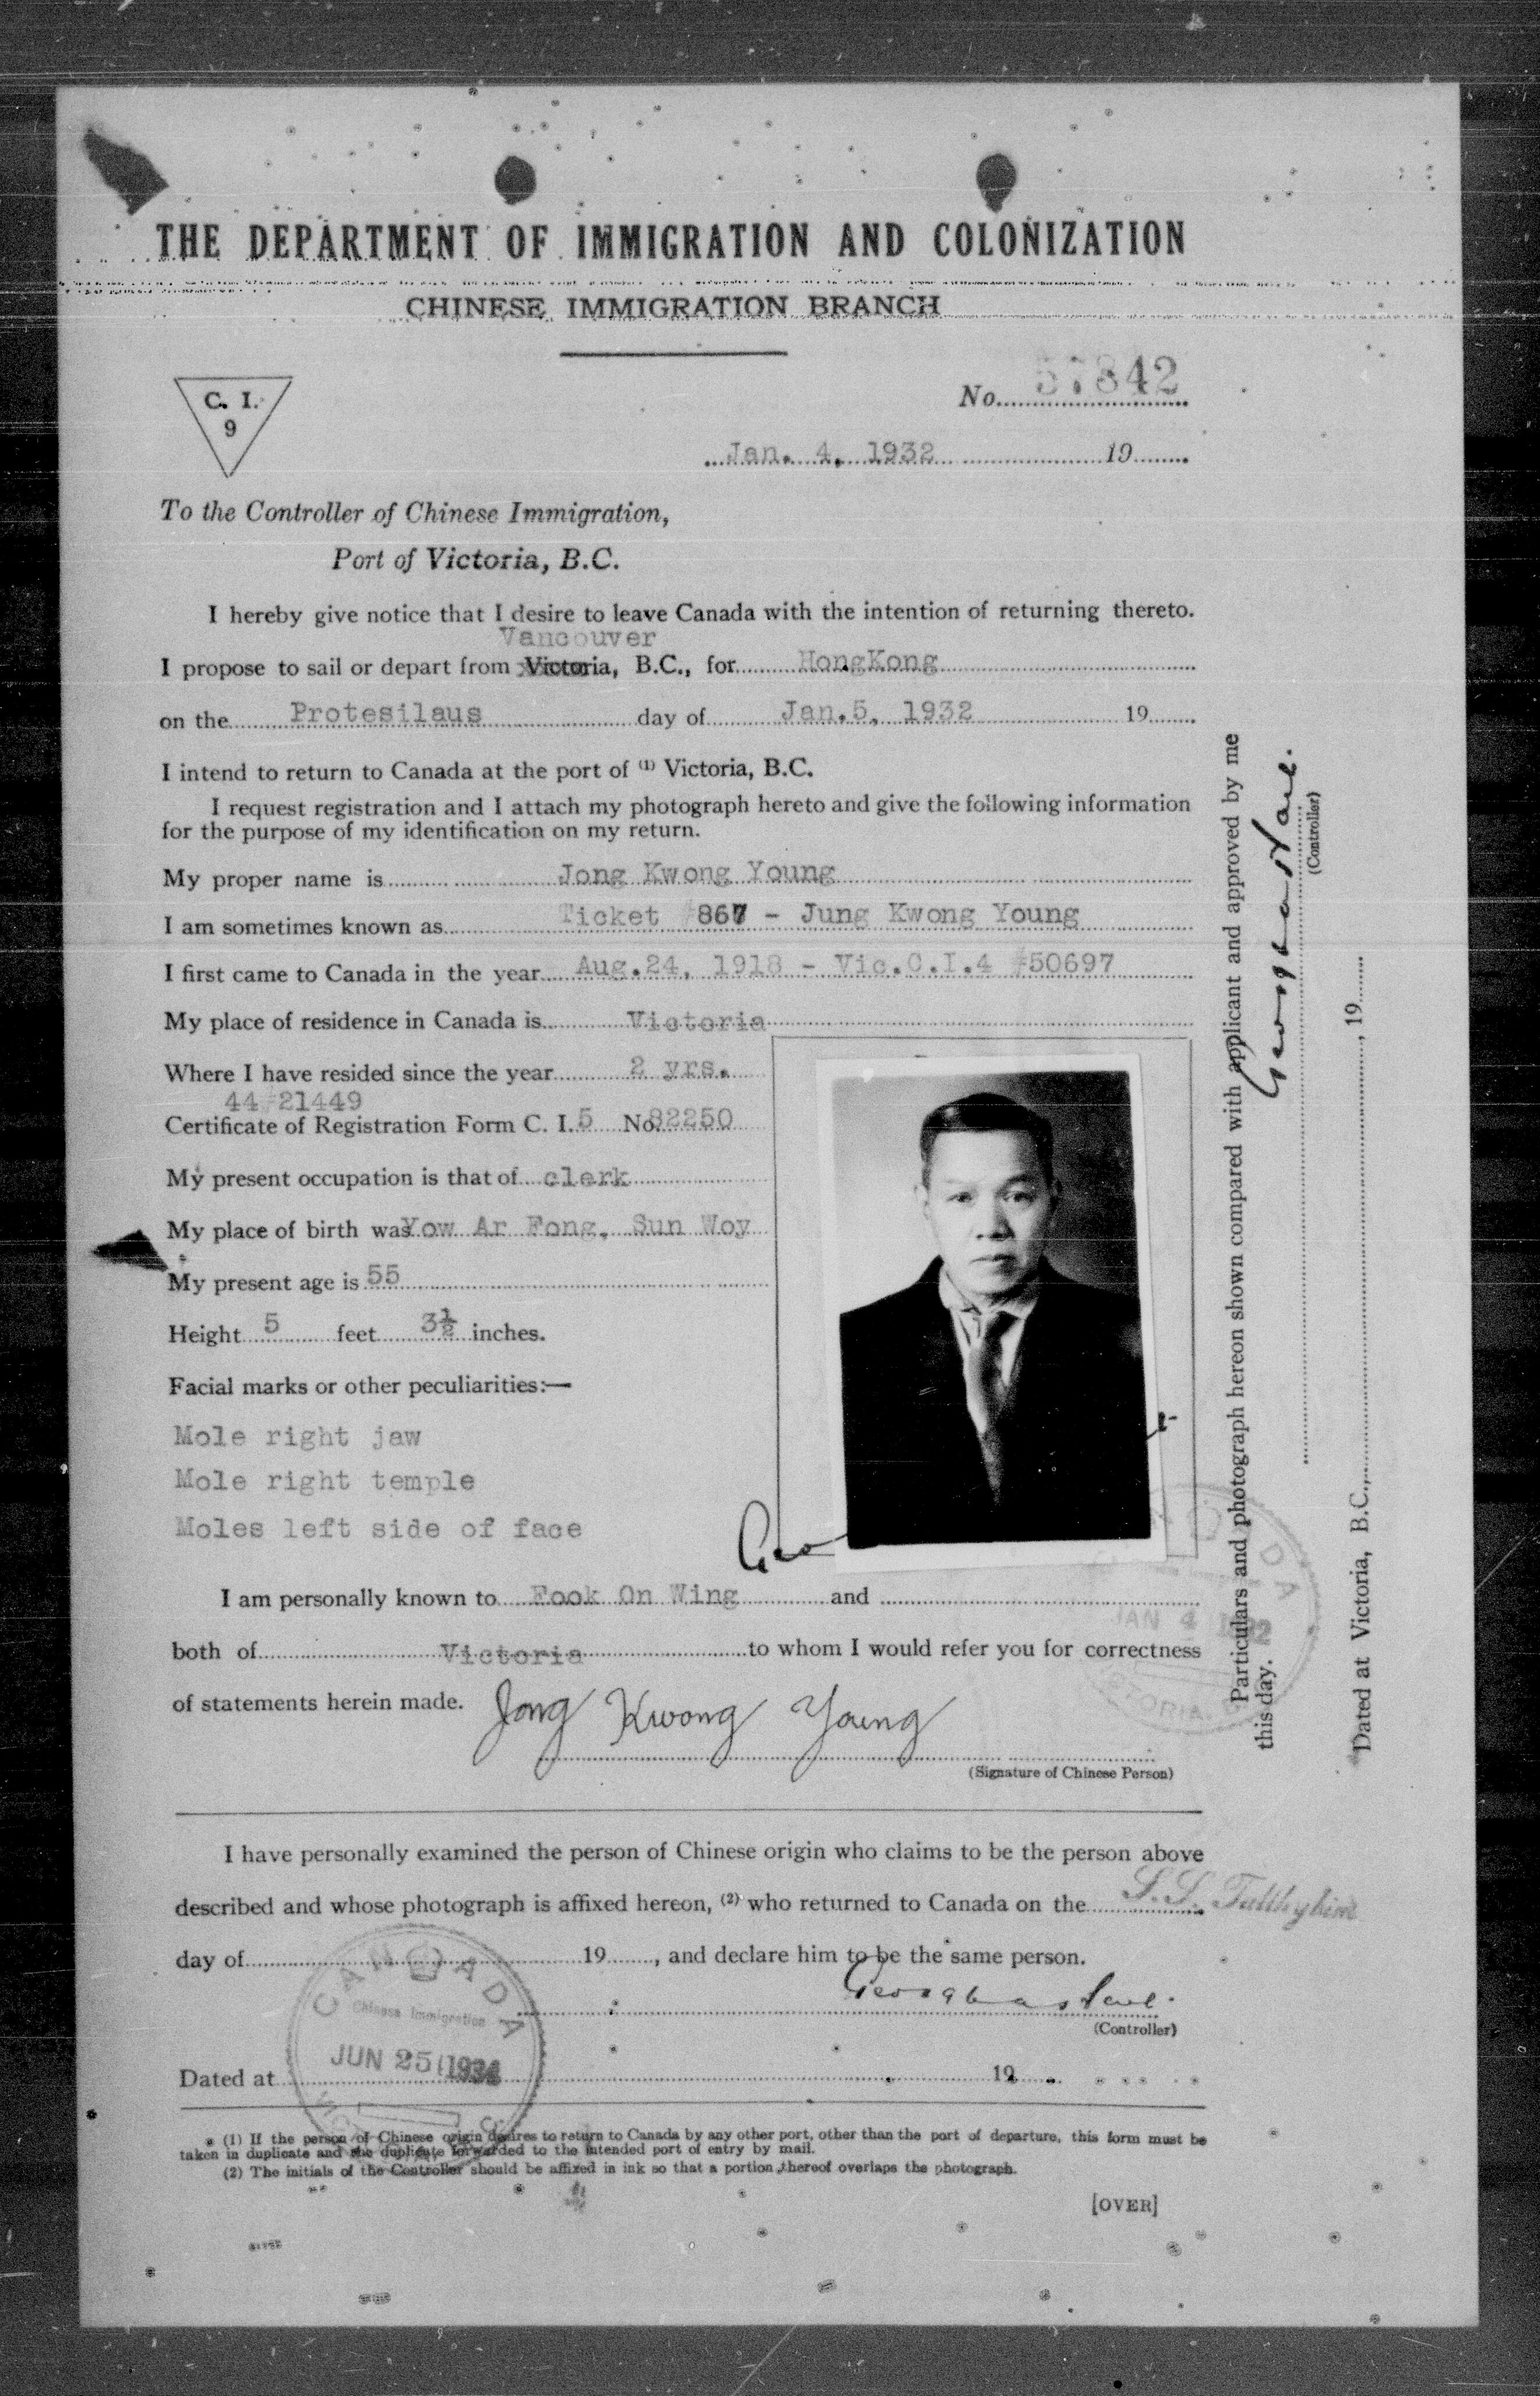 THE DEPARTMENT OF IMMIGRATION AND COLONIZATION
CHINESE IMMIGRATION BRANCH
C. I.
9
No. 57842
Jan. 4, 1932 19
To the Controller of Chinese Immigration,
Port of Victoria, B.C.
I hereby give notice that I desire to leave Canada with the intention of returning thereto.
Vancouver
I propose to sail or depart from Victoria, B.C., for HongKong
on the Protesilaus day of Jan.5, 1932 19
I intend to return to Canada at the port of (1) Victoria, B.C.
I request registration and I attach my photograph hereto and give the following information
for the purpose of my identification on my return.
My proper name is Jong Kwong Young
I am sometimes known as Ticket #867 - Jung Kwong Young
I first came to Canada in the year Aug.24, 1918 - Vic.C.I.4 #50697
My place of residence in Canada is Victoria
Where I have resided since the year 2 yrs.
44 #21449
Certificate of Registration Form C. I. 5 No. 82250
My present occupation is that of clerk
My place of birth was Yow Ar Fong, Sun Woy
My present age is 55
Height 5 feet 3½ inches.
Facial marks or other peculiarities:—
Mole right jaw
Mole right temple
Moles left side of face
Geo
I am personally known to Fook On Wing and
both of Victoria to whom I would refer you for correctness
of statements herein made. Jong Kwong Young
(Signature of Chinese Person)
Particulars and photograph hereon shown compared with applicant and approved by me
this day.
(Controller)
Dated at Victoria, B.C., , 19
CANADA
JAN 4 1932
VICTORIA
I have personally examined the person of Chinese origin who claims to be the person above
described and whose photograph is affixed hereon, (2) who returned to Canada on the S.S. Talthybius
day of 19 , and declare him to be the same person.
(Controller)
CANADA
Chinese Immigration
JUN 25 1934
Dated at 19
(1) If the person of Chinese origin desires to return to Canada by any other port, other than the port of departure, this form must be
taken in duplicate and the duplicate forwarded to the intended port of entry by mail.
(2) The initials of the Controller should be affixed in ink so that a portion thereof overlaps the photograph.
[OVER]